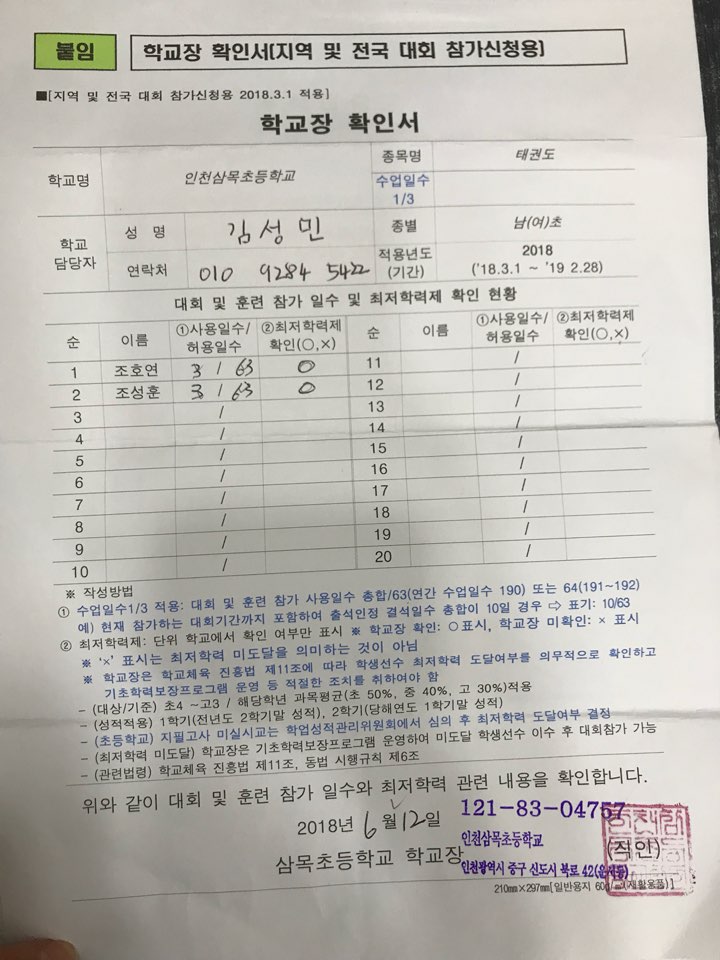 붙임
학교장 확인서(지역 및 전국 대회 참가신청용)
■[지역 및 전국 대회 참가신청용 2018.3.1 적용]
학교장 확인서
학교명 인천삼목초등학교 종목명 태권도
수업일수 1/3
학교 담당자 성 명 김성민 종별 남(여)초
연락처 010 9284 5422 적용년도 (기간) 2018 ('18.3.1 ~ '19 2.28)
대회 및 훈련 참가 일수 및 최저학력제 확인 현황
순 이름 ①사용일수/허용일수 ②최저학력제 확인(○,×) 순 이름 ①사용일수/허용일수 ②최저학력제 확인(○,×)
1 조호연 3 / 63 ○ 11 /
2 조성훈 3 / 63 ○ 12 /
3 / 13 /
4 / 14 /
5 / 15 /
6 / 16 /
7 / 17 /
8 / 18 /
9 / 19 /
10 / 20 /
※ 작성방법
① 수업일수1/3 적용: 대회 및 훈련 참가 사용일수 총합/63(연간 수업일수 190) 또는 64(191~192)
예) 현재 참가하는 대회기간까지 포함하여 출석인정 결석일수 총합이 10일 경우 ⇨ 표기: 10/63
② 최저학력제: 단위 학교에서 확인 여부만 표시 ※ 학교장 확인: ○표시, 학교장 미확인: × 표시
※ '×' 표시는 최저학력 미도달을 의미하는 것이 아님
※ 학교장은 학교체육 진흥법 제11조에 따라 학생선수 최저학력 도달여부를 의무적으로 확인하고
기초학력보장프로그램 운영 등 적절한 조치를 취하여야 함
- (대상/기준) 초4 ~고3 / 해당학년 과목평균(초 50%, 중 40%, 고 30%)적용
- (성적적용) 1학기(전년도 2학기말 성적), 2학기(당해연도 1학기말 성적)
- (초등학교) 지필고사 미실시교는 학업성적관리위원회에서 심의 후 최저학력 도달여부 결정
- (최저학력 미도달) 학교장은 기초학력보장프로그램 운영하여 미도달 학생선수 이수 후 대회참가 가능
- (관련법령) 학교체육 진흥법 제11조, 동법 시행규칙 제6조
위와 같이 대회 및 훈련 참가 일수와 최저학력 관련 내용을 확인합니다.
2018년 6월 12일
121-83-04757
인천삼목초등학교
삼목초등학교 학교장 (직인)
인천광역시 중구 신도시 북로 42(운서동)
210mm×297mm[일반용지 60g/㎡(재활용품)]